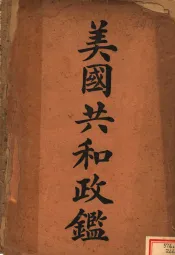 美國共和政鑑